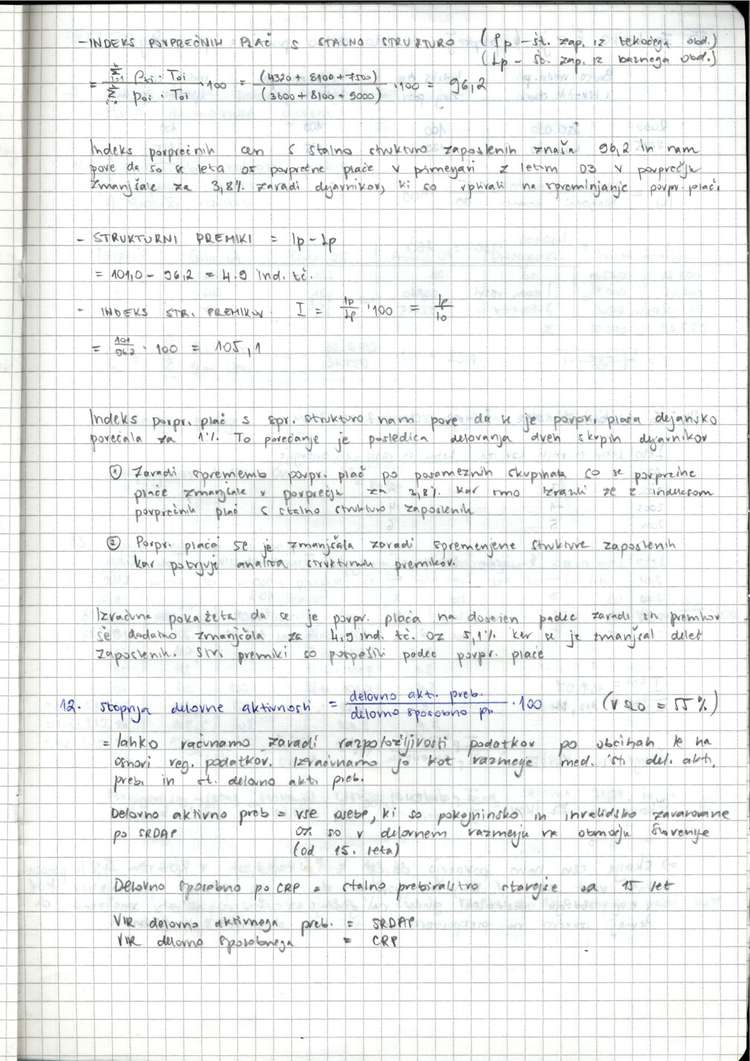 - INDEKS POVPREČNIH PLAČ S STALNO STRUKTURO (Pp - št. zap. iz tekočega obd.)
(Lp - št. zap. iz baznega obd.)
= Σ P1i · T0i / Σ P0i · T0i · 100 = (4320 + 8100 + 7500) / (3600 + 8100 + 9000) · 100 = 96,2
Indeks povprečnih cen s stalno strukturo zaposlenih znaša 96,2 in nam
pove da so se leta 05 povprečne plače v primerjavi z letom 03 v povprečju
zmanjšale za 3,8% zaradi dejavnikov, ki so vplivali na spreminjanje povpr. plač.
- STRUKTURNI PREMIKI = Ip - Lp
= 101,0 - 96,2 = 4.9 ind. tč.
- INDEKS STR. PREMIKOV I = Ip/Lp · 100 =
= 101/96,2 · 100 = 105,1
Indeks povpr. plač s spr. strukturo nam pove da se je povpr. plača dejansko
povečala za 1%. To povečanje je posledica delovanja dveh skupin dejavnikov
① Zaradi sprememb povpr. plač po posameznih skupinah so se povprečne
plače zmanjšale v povprečju za 3,8% kar smo izrazili že z indeksom
povprečnih plač s stalno strukturo zaposlenih
② Povpr. plača se je zmanjšala zaradi spremenjene strukture zaposlenih
kar potrjuje analiza strukturnih premikov.
Izračuna pokažeta da se je povpr. plača na dosežen padec zaradi str. premikov
še dodatno zmanjšala za 4,9 ind. tč. oz 5,1% ker se je zmanjšal delež
zaposlenih. Str. premiki so pospešili padec povpr. plače
12. stopnja delovne aktivnosti = delovno akt. preb. / delovno sposobno pr. · 100 (V SLO = 55%)
= lahko računamo zaradi razpoložljivosti podatkov po občinah le na
osnovi reg. podatkov. Izračunamo jo kot razmerje med. št. del. akt.
preb. in št. delovno akt. preb.
Delovno aktivno preb = vse osebe, ki so pokojninsko in invalidsko zavarovane
po SRDAP oz so v delovnem razmerju na območju Slovenije
(od 15. leta)
Delovno sposobno po CRP = stalno prebivalstvo starejše od 15 let
VIR delovno aktivnega preb. = SRDAP
VIR delovno sposobnega = CRP